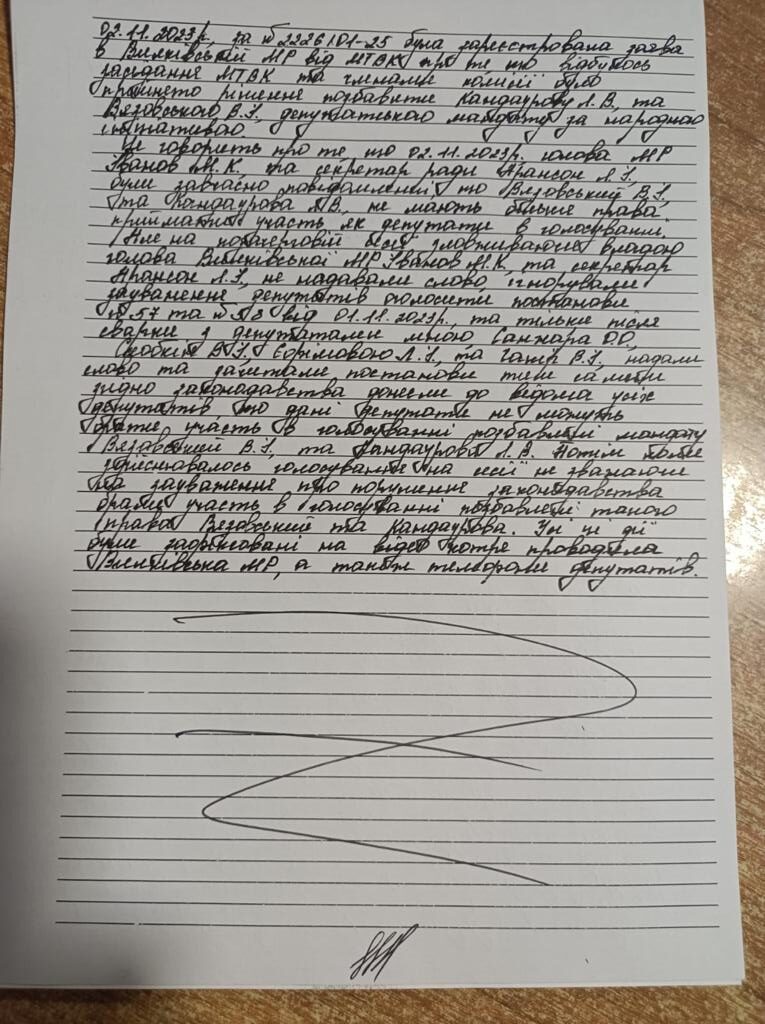 02.11.2023р. за №2226/01-25 була зареєстрована заява
в Вилківській МР від МТВК про те що відбулось
засідання МТВК та членами комісії було
прийнято рішення позбавити Кандаурову Л.В, та
Вязовського В.І, депутатського мандату за народною
ініціативаю.
Це говорить про те, що 02.11.2023р. голова МР
Іванов М.К, та секретар ради Арансон Л.І,
були завчасно повідомленні, що Вязовський В.І,
та Кандаурова Л.В, не мають більше права
приймати участь як депутати в голосуванні.
Але на позачерговій сесії зловживаючи владою
голова Вилківської МР Іванов М.К, та секретар
Арансон Л.І, не надавали слово, ігнорували
зауваження депутатів оголосити постанови
№57 та №58 від 01.11.2023р, та тільки після
сварки з депутатами мною, Санжара О.О,
В.І, Єфімовою Л.І, та Гамір В.І, надали
слово та зачитали постанови тим самим
згідно законодавства донесли до відома усіх
депутатів, що дані депутати не можуть
брати участь в голосуванні позбавлені мандату
Вязовський В.І, та Кандаурова Л.В. Потім коли
здійснювалось голосування на сесії не зважаючи
на зауваження про порушення законодавства
брали участь в голосуванні позбавлені такого
права Вязовський та Кандаурова. Усі ці дії
були зафіксовані на відео котре проводила
Вилківська МР, а також телефони депутатів.